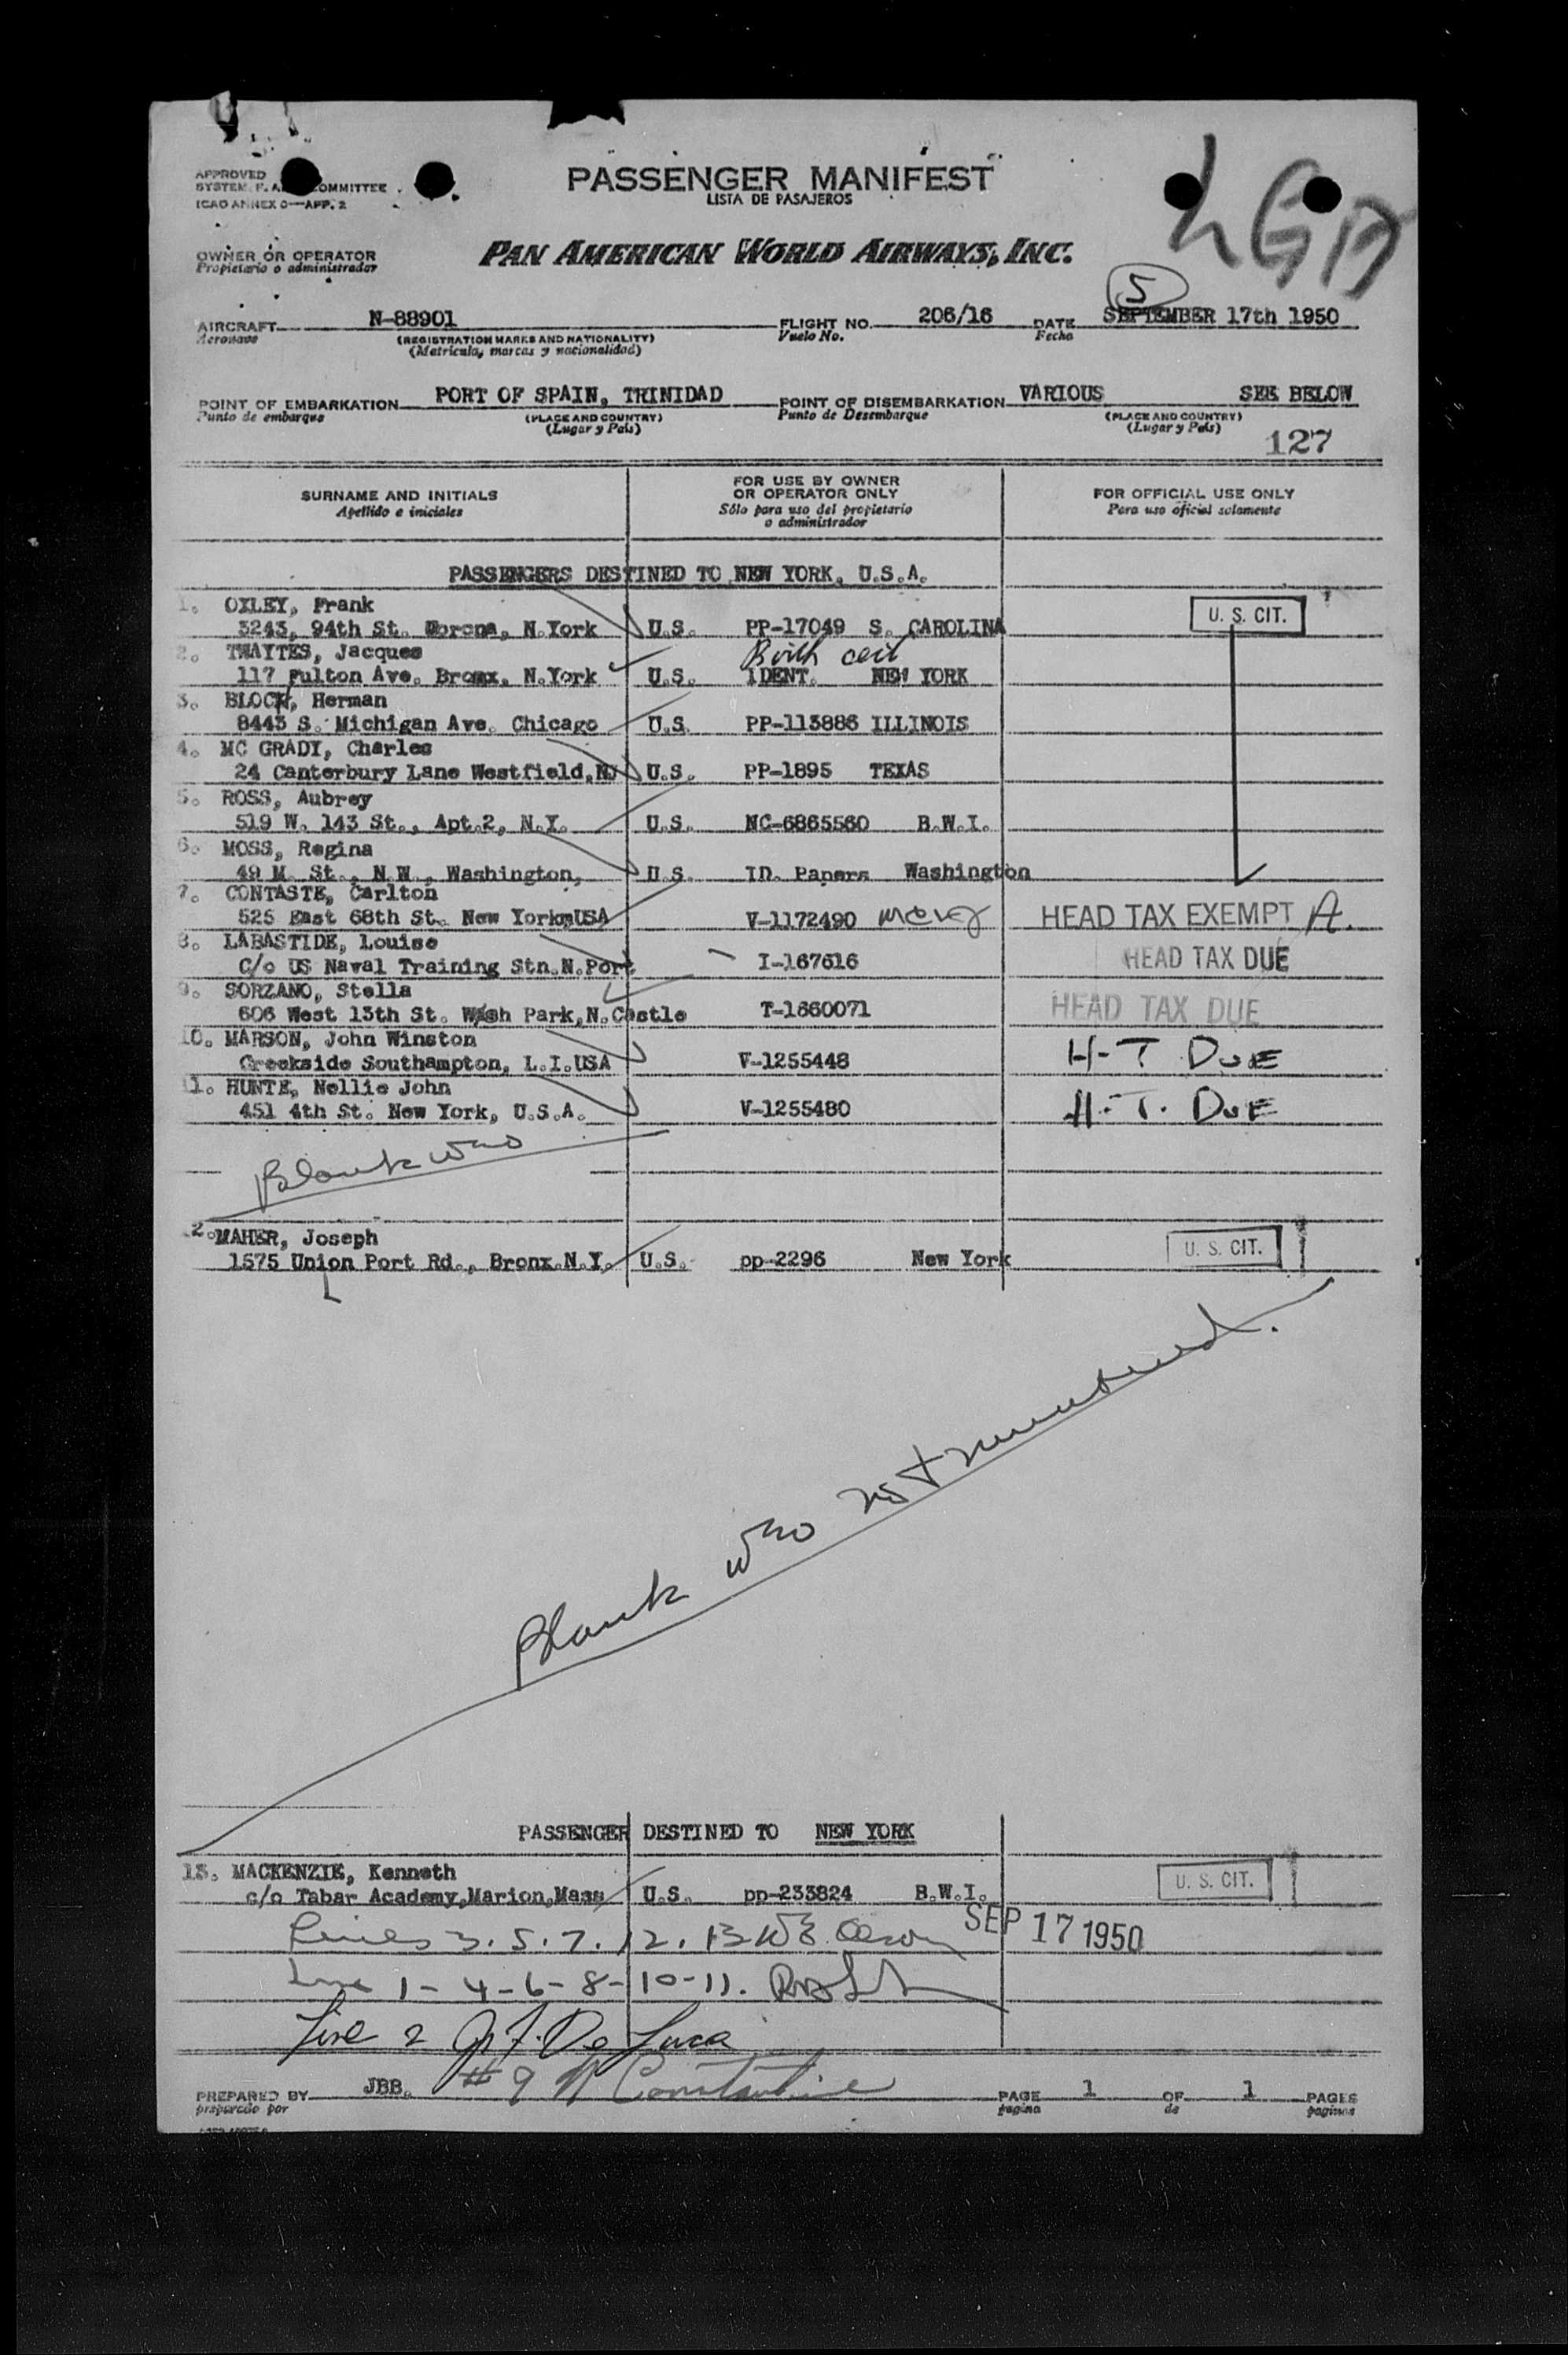 APPROVED
SYSTEM F. A. COMMITTEE
ICAO ANNEX 9—APP. 2
PASSENGER MANIFEST
LISTA DE PASAJEROS
LGA
OWNER OR OPERATOR
Propietario o administrador
PAN AMERICAN WORLD AIRWAYS, INC.
5
AIRCRAFT N-88901 FLIGHT NO. 206/16 DATE SEPTEMBER 17th 1950
Aeronave (REGISTRATION MARKS AND NATIONALITY) Vuelo No. Fecha
(Matrícula, marcas y nacionalidad)
POINT OF EMBARKATION PORT OF SPAIN, TRINIDAD POINT OF DISEMBARKATION VARIOUS SEE BELOW
Punto de embarque (PLACE AND COUNTRY) Punto de Desembarque (PLACE AND COUNTRY)
(Lugar y País) (Lugar y País)
127
SURNAME AND INITIALS FOR USE BY OWNER OR OPERATOR ONLY FOR OFFICIAL USE ONLY
Apellido e iniciales Sólo para uso del propietario o administrador Para uso oficial solamente
PASSENGERS DESTINED TO NEW YORK, U.S.A.
1. OXLEY, Frank
3243, 94th St. Corona, N.York U.S. PP-17049 S. CAROLINA U. S. CIT.
2. TWAITES, Jacques Birth cert
117 Fulton Ave. Bronx, N.York U.S. IDENT. NEW YORK
3. BLOCH, Herman
8443 S. Michigan Ave. Chicago U.S. PP-113886 ILLINOIS
4. MC GRADY, Charles
24 Canterbury Lane Westfield, NJ U.S. PP-1895 TEXAS
5. ROSS, Aubrey
519 W. 143 St., Apt.2, N.Y. U.S. NC-6865560 B.W.I.
6. MOSS, Regina
49 M. St., N.W., Washington, U.S. ID. Papers Washington
7. CONTASTE, Carlton
525 East 68th St. New York, USA V-1172490 HEAD TAX EXEMPT A.
8. LABASTIDE, Louise
C/o US Naval Training Stn. N. Port I-167616 HEAD TAX DUE
9. SORZANO, Stella
606 West 13th St. Wash Park, N. Castle T-1660071 HEAD TAX DUE
10. MARSON, John Winston
Creekside Southampton, L.I.USA V-1255448 H-T DUE
11. HUNTE, Nellie John
451 4th St. New York, U.S.A. V-1255480 H.T. DUE
Blank
12. MAHER, Joseph
1575 Union Port Rd., Bronx.N.Y. U.S. pp-2296 New York U. S. CIT.
Blank not
PASSENGER DESTINED TO NEW YORK
13. MACKENZIE, Kenneth
c/o Tabar Academy, Marion, Mass U.S. pp-233824 B.W.I. U. S. CIT.
Lines 3. 5. 7. 12. 13 SEP 17 1950
Line 1-4-6-8-10-11.
Line 2 De Luca
#9 Constantine
PREPARED BY JBB. PAGE 1 OF 1 PAGES
preparado por pagina de paginas